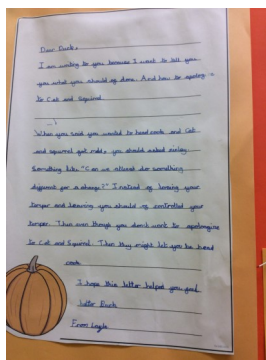 Dear Duck,
I am writing to you because I want to tell you
what you should of done. And how to apologise
to Cat and Squirrel.
When you said you wanted to head cook and Cat
and squirrel got mad, you should asked nicley.
Something like, "Can we atleast do something
different for a change?" Instead of loosing your
temper and leaving you should of controlled your
temper. Then even though you don't want to apologise
to Cat and Squirrel. Then they might let you be head
cook.
I hope this letter helped you good
luck Duck
From Layla